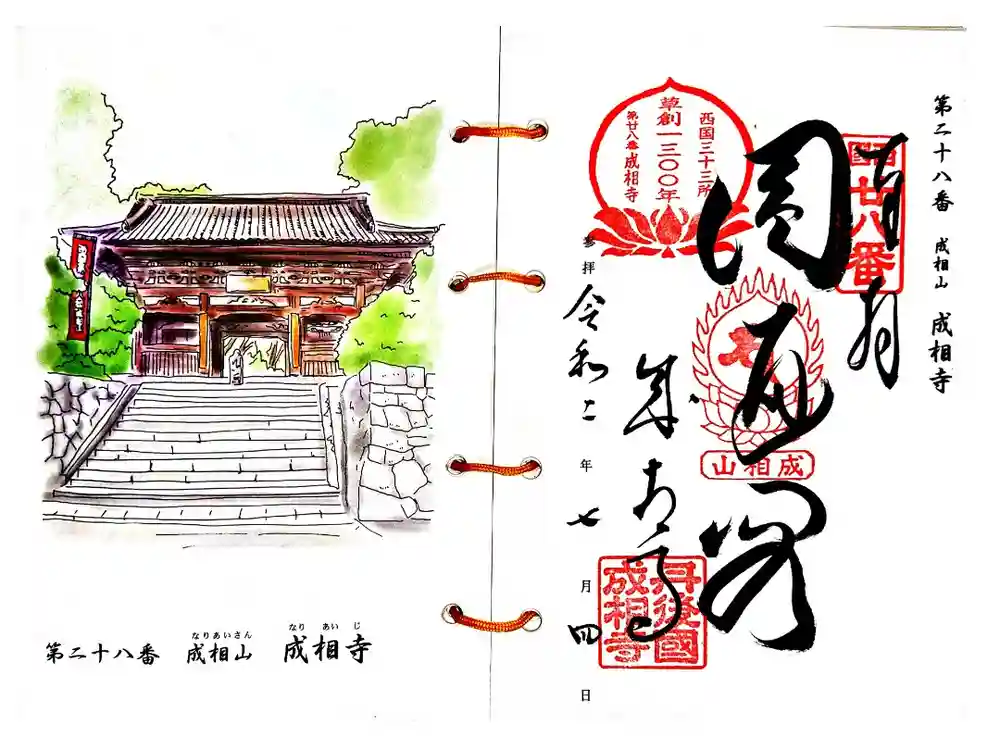 第二十八番 成相山 成相寺
なりあいさん
なり あい じ
第二十八番 成相山 成相寺
奉拝
西国廿八番
西国三十三所
草創一三〇〇年
第廿八番 成相寺
圓通閣
成相山
成相寺
丹後國
成相寺
参拝 令和二年 七月 四日